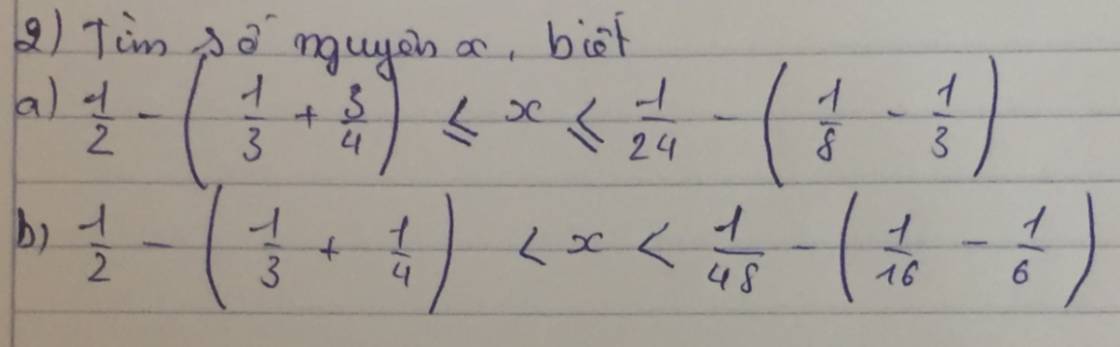 2) Tìm số nguyên x, biết
a) 1/2 - (1/3 + 3/4) ≤ x ≤ 1/24 - (1/8 - 1/3)
b) 1/2 - (1/3 + 1/4) < x < 1/48 - (1/16 - 1/6)